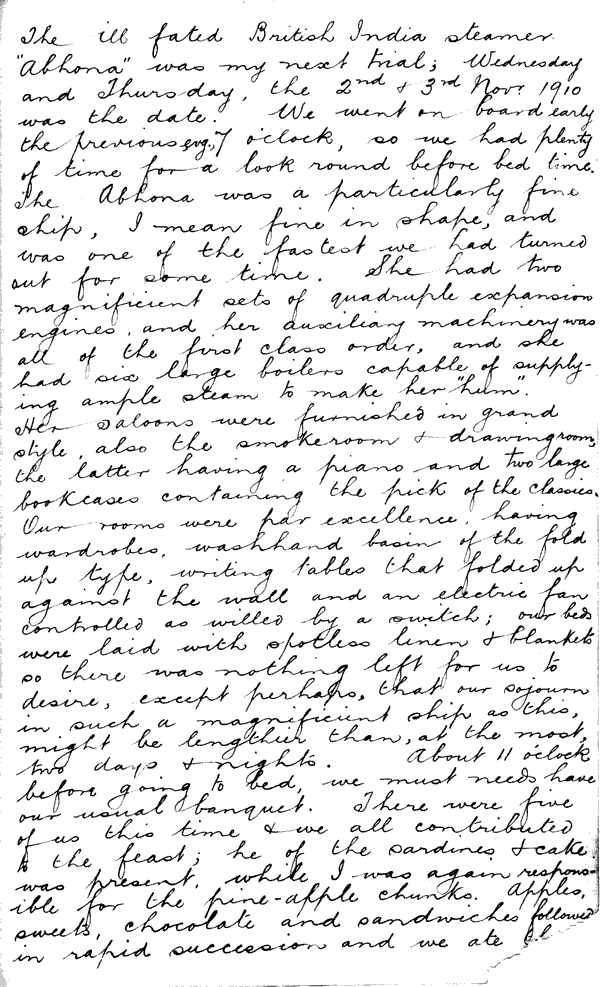 The ill fated British India steamer
"Abhona" was my next trial; Wednesday
and Thursday, the 2nd & 3rd Novr 1910
was the date. We went on board early
the previous evg., 7 o'clock, so we had plenty
of time for a look round before bed time.
The Abhona was a particularly fine
ship, I mean fine in shape, and
was one of the fastest we had turned
out for some time. She had two
magnificient sets of quadruple expansion
engines, and her auxiliary machinery was
all of the first class order, and she
had six large boilers capable of supply-
ing ample steam to make her "hum".
Her saloons were furnished in grand
style, also the smokeroom & drawingroom,
the latter having a piano and two large
bookcases containing the pick of the classics.
Our rooms were par excellence, having
wardrobes, washhand basin of the fold
up type, writing tables that folded up
against the wall and an electric fan
controlled as willed by a switch; our beds
were laid with spotless linen & blankets
so there was nothing left for us to
desire, except perhaps, that our sojourn
in such a magnificient ship as this,
might be lengthier than, at the most,
two days & nights. About 11 o'clock
before going to bed, we must needs have
our usual banquet. There were five
of us this time & we all contributed
to the feast; he of the sardines & cake
was present, while I was again respons-
ible for the pine-apple chunks. Apples,
sweets, chocolate and sandwiches followed
in rapid succession and we ate